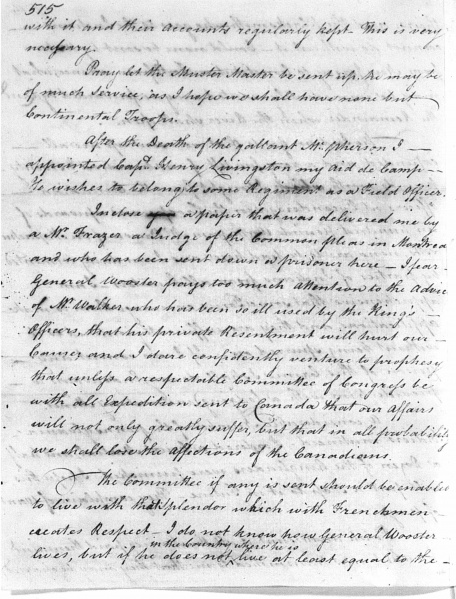 515
with it and their Accounts regularly kept – This is very
necessary.
Pray let the Muster Master be sent up. he may be
of much Service, as I hope we shall have none but
Continental Troops.
After the Death of the gallant Mc.pherson I –
appointed Capt. Henry Livingston my Aid de Camp –
He wishes to belong to some Regiment as a Field Officer.
Inclose you a paper that was delivered me by
a Mr. Frazer a Judge of the Common pleas in Montreal
and who has been sent down a prisoner here – I fear
General Wooster pays too much Attention to the Advice
of Mr. Walker who has been so ill used by the King's
Officers, that his private Resentment will hurt our –
Cause, and I dare confidently venture to prophesy
that unless a respectable Committee of Congress be
with all Expedition sent to Canada that our Affairs
will not only greatly suffer, but that in all probability
we shall lose the Affections of the Canadians.
The Committee if any is sent should be enabled
to live with that Splendor which with Frenchmen –
creates Respect – I do not know how General Wooster
in the Country where he is
lives, but if he does not live at least equal to the –